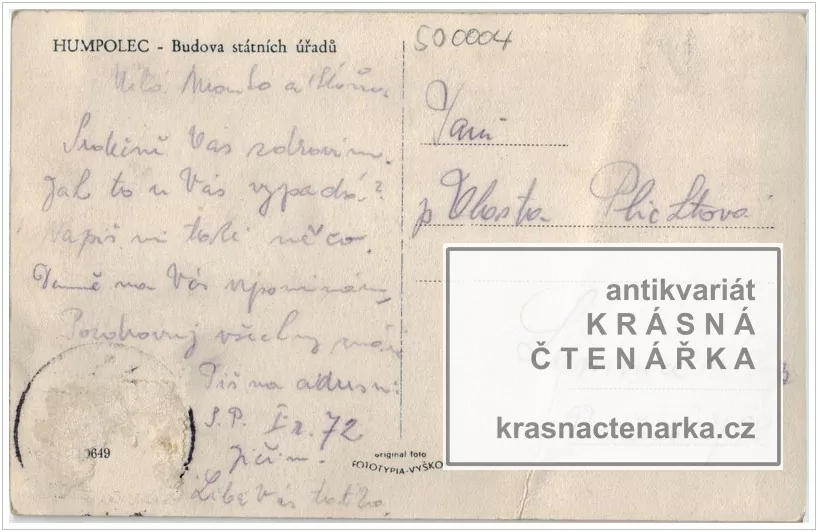 HUMPOLEC - Budova státních úřadů
500004
Milá
Srdečně Vás zdravím.
Jak to u Vás vypadá?
Napiš mi také něco.
Denně na Vás vzpomínám,
Pozdravuj všechny
Piš na adresu:
S.P. I 72
Jičín.
Líbá Vás
0649
original foto
FOTOTYPIA-VYŠKO
Paní
p Vlasta Plichtová
antikvariát
KRÁSNÁ
ČTENÁŘKA
krasnactenarka.cz